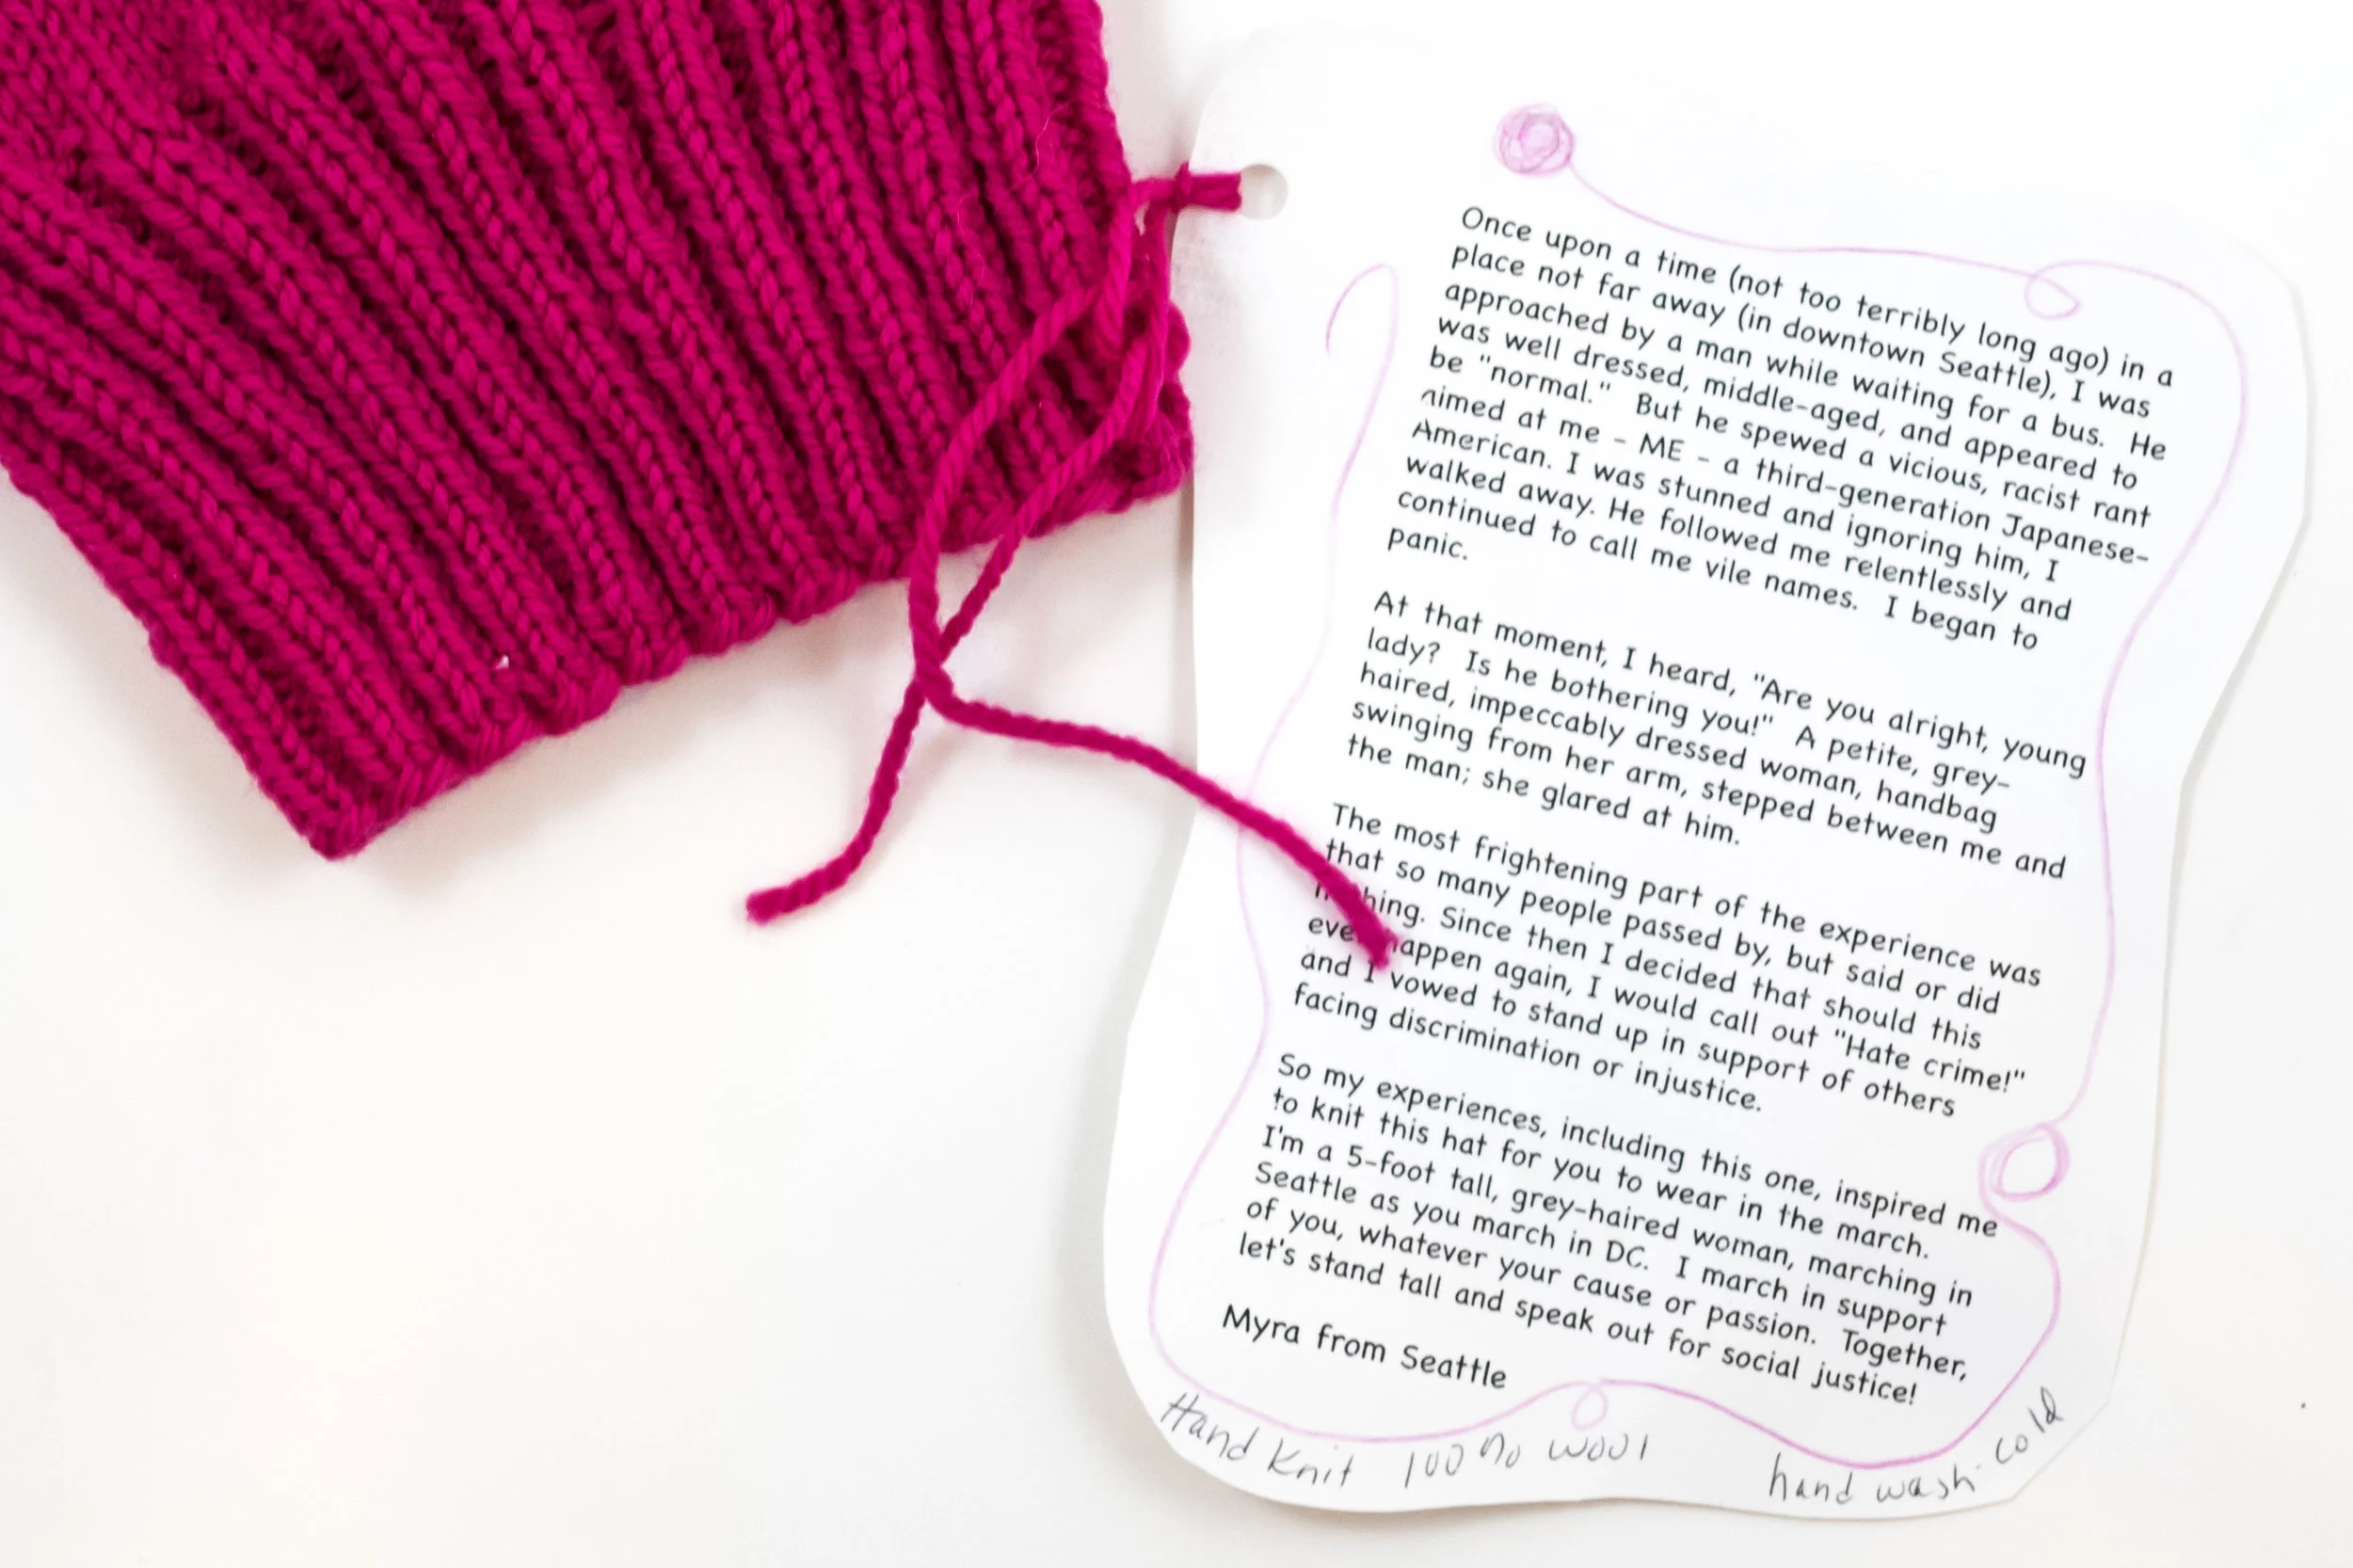 Once upon a time (not too terribly long ago) in a
place not far away (in downtown Seattle), I was
approached by a man while waiting for a bus. He
was well dressed, middle-aged, and appeared to
be "normal." But he spewed a vicious, racist rant
aimed at me - ME - a third-generation Japanese-
American. I was stunned and ignoring him, I
walked away. He followed me relentlessly and
continued to call me vile names. I began to
panic.
At that moment, I heard, "Are you alright, young
lady? Is he bothering you!" A petite, grey-
haired, impeccably dressed woman, handbag
swinging from her arm, stepped between me and
the man; she glared at him.
The most frightening part of the experience was
that so many people passed by, but said or did
nothing. Since then I decided that should this
ever happen again, I would call out "Hate crime!"
and I vowed to stand up in support of others
facing discrimination or injustice.
So my experiences, including this one, inspired me
to knit this hat for you to wear in the march.
I'm a 5-foot tall, grey-haired woman, marching in
Seattle as you march in DC. I march in support
of you, whatever your cause or passion. Together,
let's stand tall and speak out for social justice!
Myra from Seattle
Hand Knit 100% wool hand wash cold